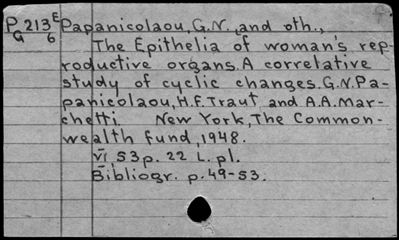 P 213 E Papanicolaou, G.N., and oth.,
G 6 The Epithelia of woman's rep-
roductive organs. A correlative
study of cyclic changes. G.N. Pa-
panicolaou, H.F. Traut and A.A. Mar-
chetti New York, The Common-
wealth fund, 1948.
VI, 53 p. 22 L. pl.
Bibliogr. p. 49-53.